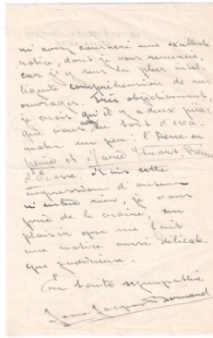 m'avez consacré une excellente
notice, dont je vous remercie,
car j'y sens la plus intel-
ligente compréhension de mes
ouvrages. Très objectivement
je crois qu'il y a deux pièces
que vous
un peu :
et Marie Stuart, Reine
d'Ecosse, mais cette
impression d'auteur
n'enlève rien, je vous
prie de le croire, au
plaisir que m'a fait
une notice aussi délicate
que judicieuse.
En toute sympathie
Jean-Jacques Bernard